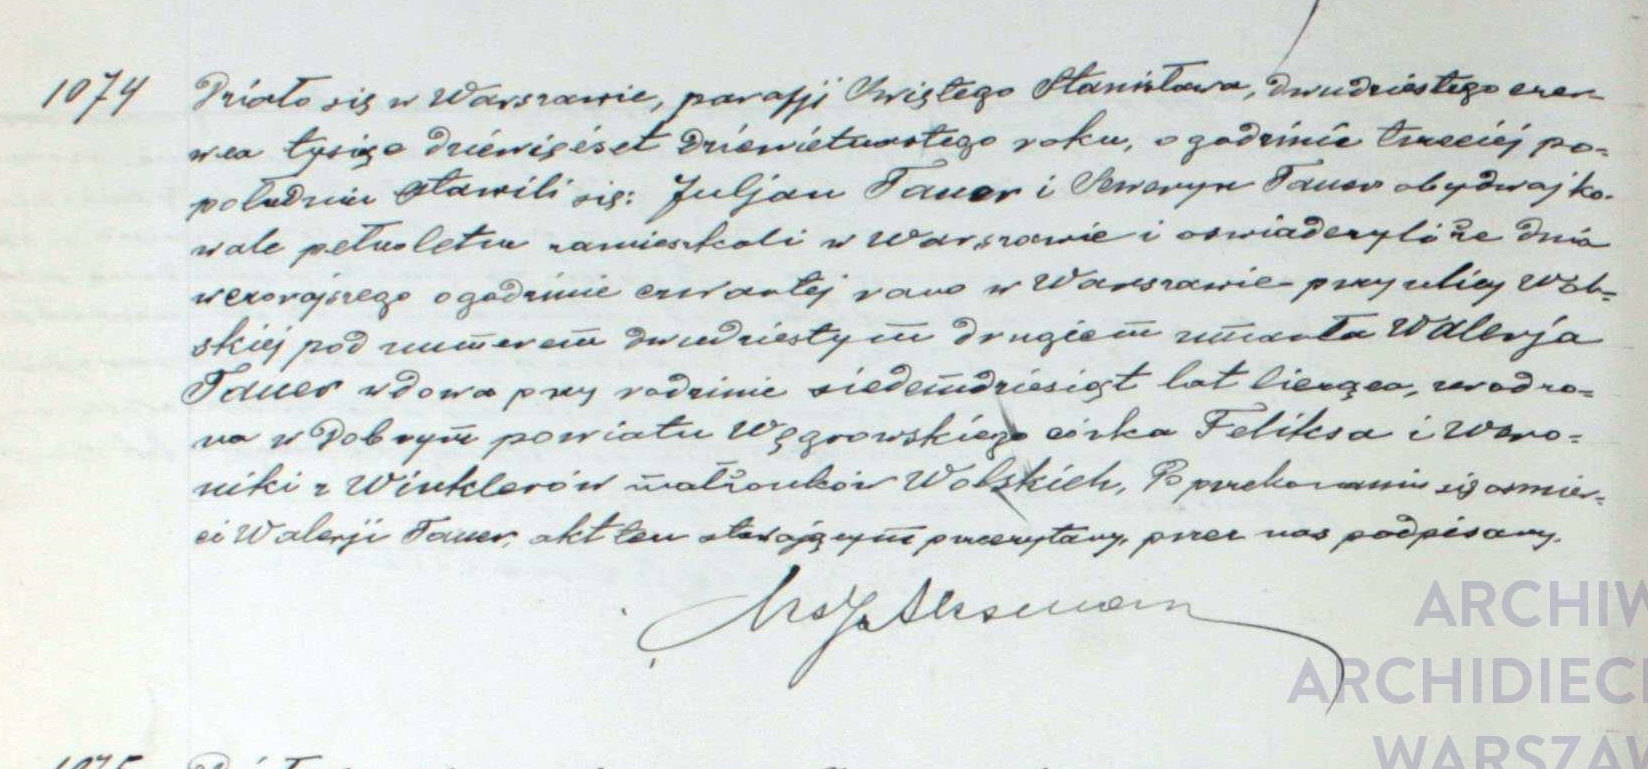 1074 Działo się w Warszawie, parafji Świętego Stanisława, dwudziestego czer-
wca tysiąc dziewięćset dziewiętnastego roku, o godzinie trzeciej po-
południu stawili się: Juljan Tauer i Seweryn Tauer obydwaj ko-
wale pełnoletni zamieszkali w Warszawie i oświadczyli że dnia
wczorajszego o godzinie czwartej rano w Warszawie przy ulicy Wol-
skiej pod numerem dwudziestym drugiem zmarła Walerja
Tauer wdowa przy rodzinie siedemdziesiąt lat licząca, urodzo-
na w Dobrym powiatu Węgrowskiego córka Feliksa i Wero-
niki z Winklerów małżonków Wolskich. Po przekonaniu się o śmier-
ci Walerji Tauer, akt ten stawającym przeczytany, przez nas podpisany.
1075
ARCHIW
ARCHIDIECE
WARSZAW